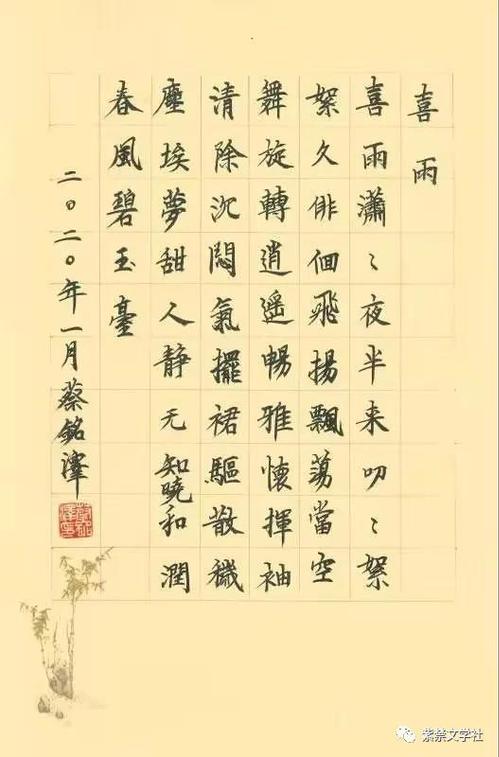 喜雨
喜雨瀟〻夜半来叨〻絮
絮久俳佪飛揚飄蕩當空
舞旋轉逍遥暢雅懷揮袖
清除沉悶氣擺裙驅散穢
塵埃夢甜人静无知曉和潤
春風碧玉臺
二〇二〇年一月蔡銘澤
紫禁文学社